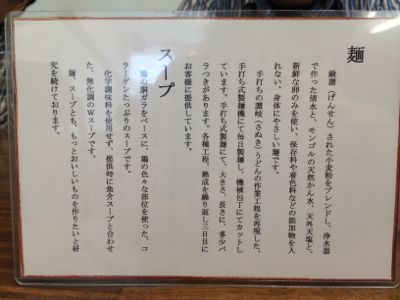 麺
厳選（げんせん）された小麦粉をブレンドし、浄水器
で作った清水と、モンゴルの天然かん水、天外天塩と、
新鮮な卵のみを使い、保存料や着色料などの添加物を入
れない、身体にやさしい麺です。
手打ちの讃岐（さぬき）うどんの作業工程を再現した、
手打ち式製麺機にて毎日製麺し、機械包丁にてカットし
ています。手打ち式製麺にて、大きさ、長さに、多少バ
ラつきがあります。各種工程、熟成を繰り返し三日目に
お客様に提供しています。
スープ
鶏の胴ガラをベースに、鶏の色々な部位を使った、コ
ラーゲンたっぷりのスープです。
化学調味料を使用せず、提供時に魚介スープと合わせ
た、無化調のＷスープです。
麺、スープとも、もっとおいしいものを作りたいと研
究を続けております。